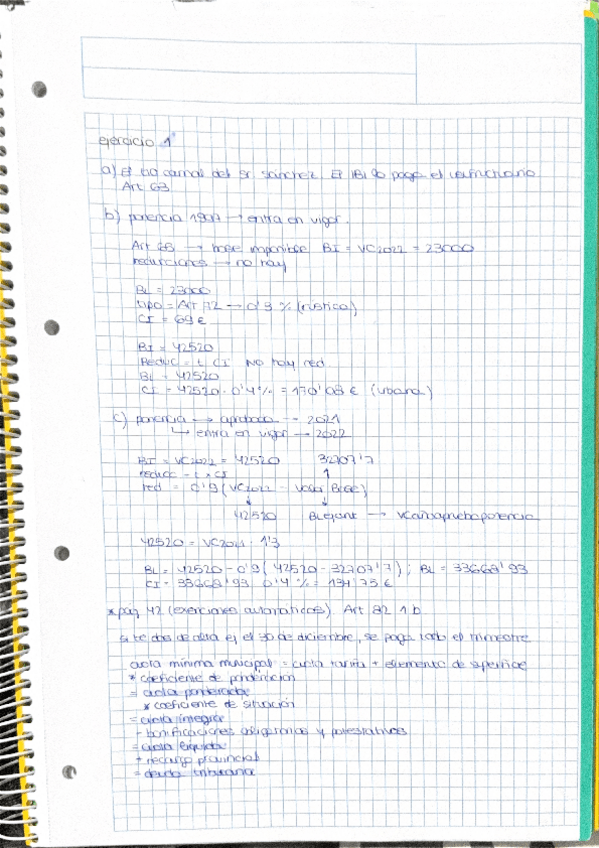 ejercicio 1
a) El tío carnal del Sr. Sánchez. El IBI lo paga el usufructuario
Art 63
b) ponencia 1997 → entra en vigor.
Art 68 → base imponible BI = VC2022 = 23000
reducciones → no hay
BL = 23000
tipo = Art 72 → 0'3 % (rústico)
CI = 69 €
BI = 42520
Reduc = t CI No hay red.
BL = 42520
CI = 42520 · 0'4 % = 170'08 € (urbana)
c) ponencia → aprobada → 2021
↳ entra en vigor → 2022
BI = VC2022 = 42520 32707'7
reducc = t × CI ↑
red = 0'9 (VC2022 - Valor Base)
↓ ↓
42520 BLejant → VCañoapruebaponencia
42520 = VC2021 · 1'3
BL = 42520 - 0'9 (42520 - 32707'7) ; BL = 33668'93
CI = 33668'93 0'4 % = 134'75 €
* pág 42 (exenciones automáticas) Art 82 1 b
si te das de alta el 30 de diciembre, se paga todo el trimestre
cuota mínima municipal = cuota tarifa + elemento de superficie
* coeficiente de ponderación
= cuota ponderada
* coeficiente de situación
= cuota íntegra
- bonificaciones obligatorias y potestativas
= cuota líquida
+ recargo provincial
= deuda tributaria